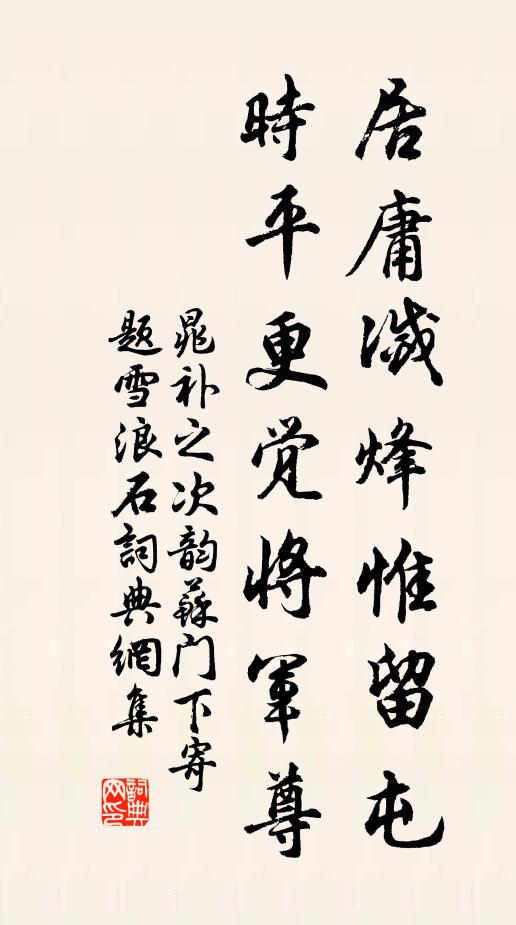 居庸滅烽惟留屯
時平更覚將軍尊
晁补之次韵蘇门下寄
題雪浪石詞典網集
詞典網印